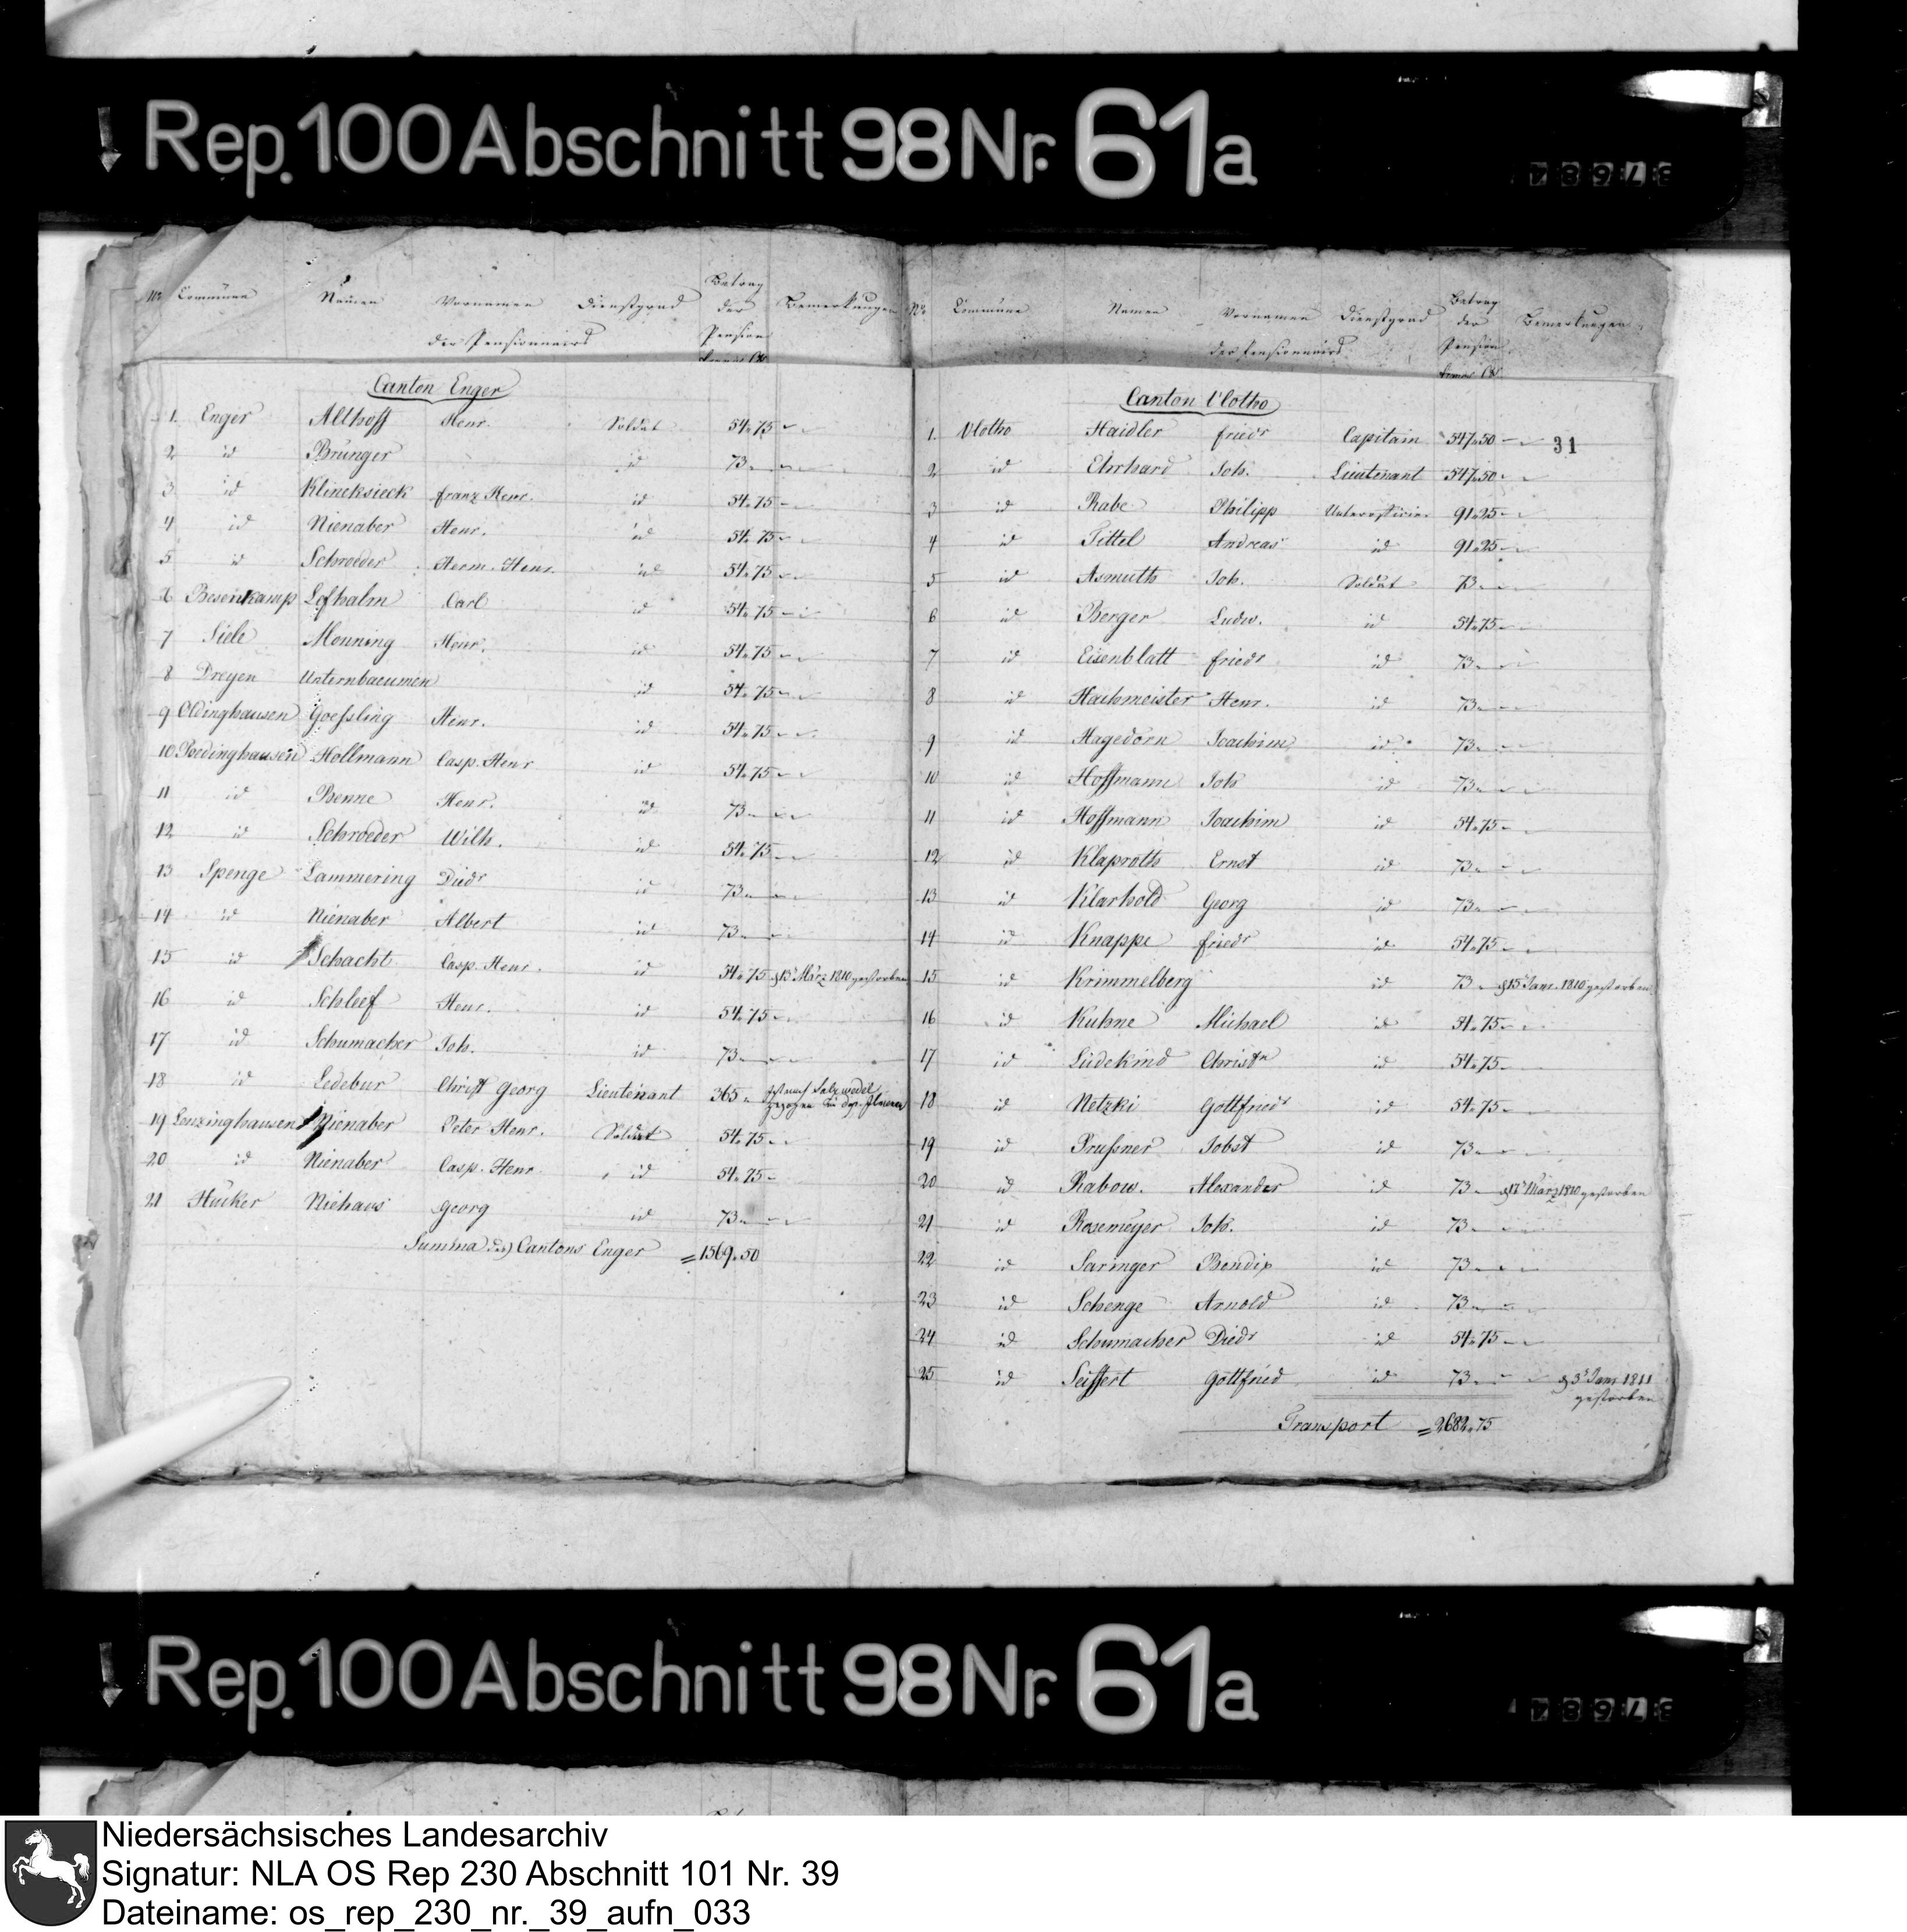 Rep. 100 Abschnitt 98 Nr. 61a
37684
No Commüne Namen Vornamen Dienstgrad Betrag der Pension Bemerkungen
der Pensionnairs
francs Cs
Canton Enger
1. Enger Althoff Henr. Soldat 54.75
2 id Brünger id 73
3 id Klincksieck franz Henr. id 54.75
4 id Nienaber Henr. id 54.75
5 id Schroeder Herm. Henr. id 54.75
6 Besenkamp Lofhalm Carl id 54.75
7 Siele Monning Henr. id 54.75
8 Dreyen Unternbaeumen id 54.75
9 Oldinghausen Goessling Henr. id 54.75
10 Boedinghausen Hollmann Casp. Henr id 54.75
11 id Benne Henr. id 73
12 id Schroeder Wilh. id 54.75
13 Spenge Lammering Diedr id 73
14 id Nienaber Albert id 73
15 id Schacht Casp. Henr. id 54.75 d 13t März 1810 gestorben
16 id Schleef Henr. id 54.75
17 id Schumacher Joh. id 73
18 id Ledebur Christ Georg Lieutenant 365 ist nach Salzwedel
gezogen
19 Lenzinghausen Nienaber Peter Henr. Soldat 54.75
20 id Nienaber Casp. Henr id 54.75
21 Hücker Niehaus Georg id 73
Summa des Cantons Enger = 1569.50
No Commüne Namen Vornamen Dienstgrad Betrag der Pension Bemerkungen
der Pensionnairs
francs Cs
31
Canton Vlotho
1. Vlotho Haidler friedr Capitain 547.50
2 id Ehrhard Joh. Lieutenant 547.50
3 id Rabe Philipp Unterofficier 91.25
4 id Tittel Andreas id 91.25
5 id Asmuth Joh. Soldat 73
6 id Berger Ludw. id 54.75
7 id Eisenblatt friedr id 73
8 id Hachmeister Henr. id 73
9 id Hagedorn Joachim id 73
10 id Hoffmann Joh id 73
11 id Hoffmann Joachim id 54.75
12 id Klaproth Ernst id 73
13 id Klarhold Georg id 73
14 id Knappe friedr id 54.75
15 id Krimmelberg id 73 d 15t Janr. 1810 gestorben
16 id Kuhne Michael id 54.75
17 id Lüdekind Christn id 54.75
18 id Netzki Gottfriedr id 54.75
19 id Prussner Jobst id 73
20 id Rabow. Alexander id 73 d 17t März 1810 gestorben
21 id Rosemeyer Joh. id 73
22 id Saringer Bendix id 73
23 id Schenge Arnold id 73
24 id Schumacher Diedr id 54.75
25 id Seiffert Gottfried id 73 d 3t Janr 1811
gestorben
Transport = 2682.75
Rep. 100 Abschnitt 98 Nr. 61a
37684
Niedersächsisches Landesarchiv
Signatur: NLA OS Rep 230 Abschnitt 101 Nr. 39
Dateiname: os_rep_230_nr._39_aufn_033